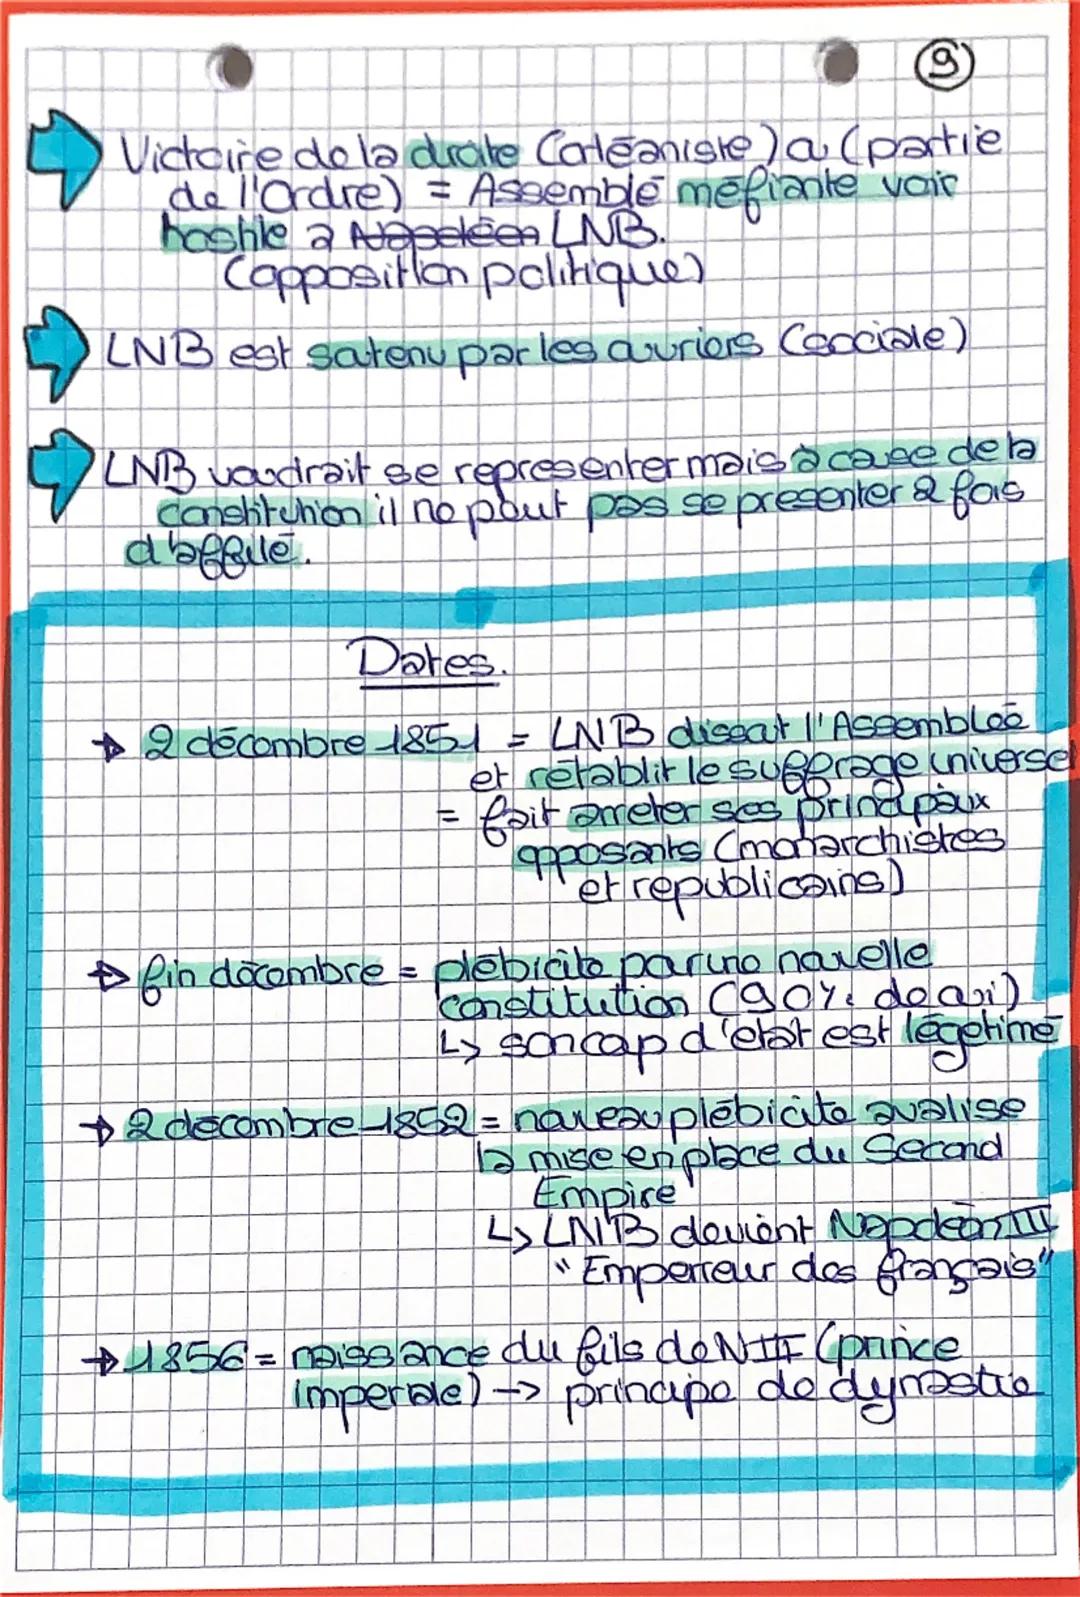 9
Victoire de la droite (orléaniste) a (partie
de l'Ordre) = Assemblé méfiante voir
hostile a Napoléon LNB.
(opposition politique)
LNB est soutenu par les ouvriers (sociale)
LNB voudrait se representer mais à cause de la
constitution il ne peut pas se presenter 2 fois
d'affilé.
Dates.
→ 2 décembre 1851 = LNB dissout l'Assemblée
et rétablit le suffrage universel
= fait arreter ses principaux
opposants (monarchistes
et republicains)
→ fin décembre = plébicite pour une nouvelle
constitution (90% de oui)
↳ son coup d'état est légetimé
→ 2 decembre 1852 = nouveau plébicite avalise
la mise en place du Second
Empire
↳ LNB devient Napoléon III
"Emperreur des français"
→ 1856 = naissance du fils de NIII (prince
imperiale) -> principe de dynastie